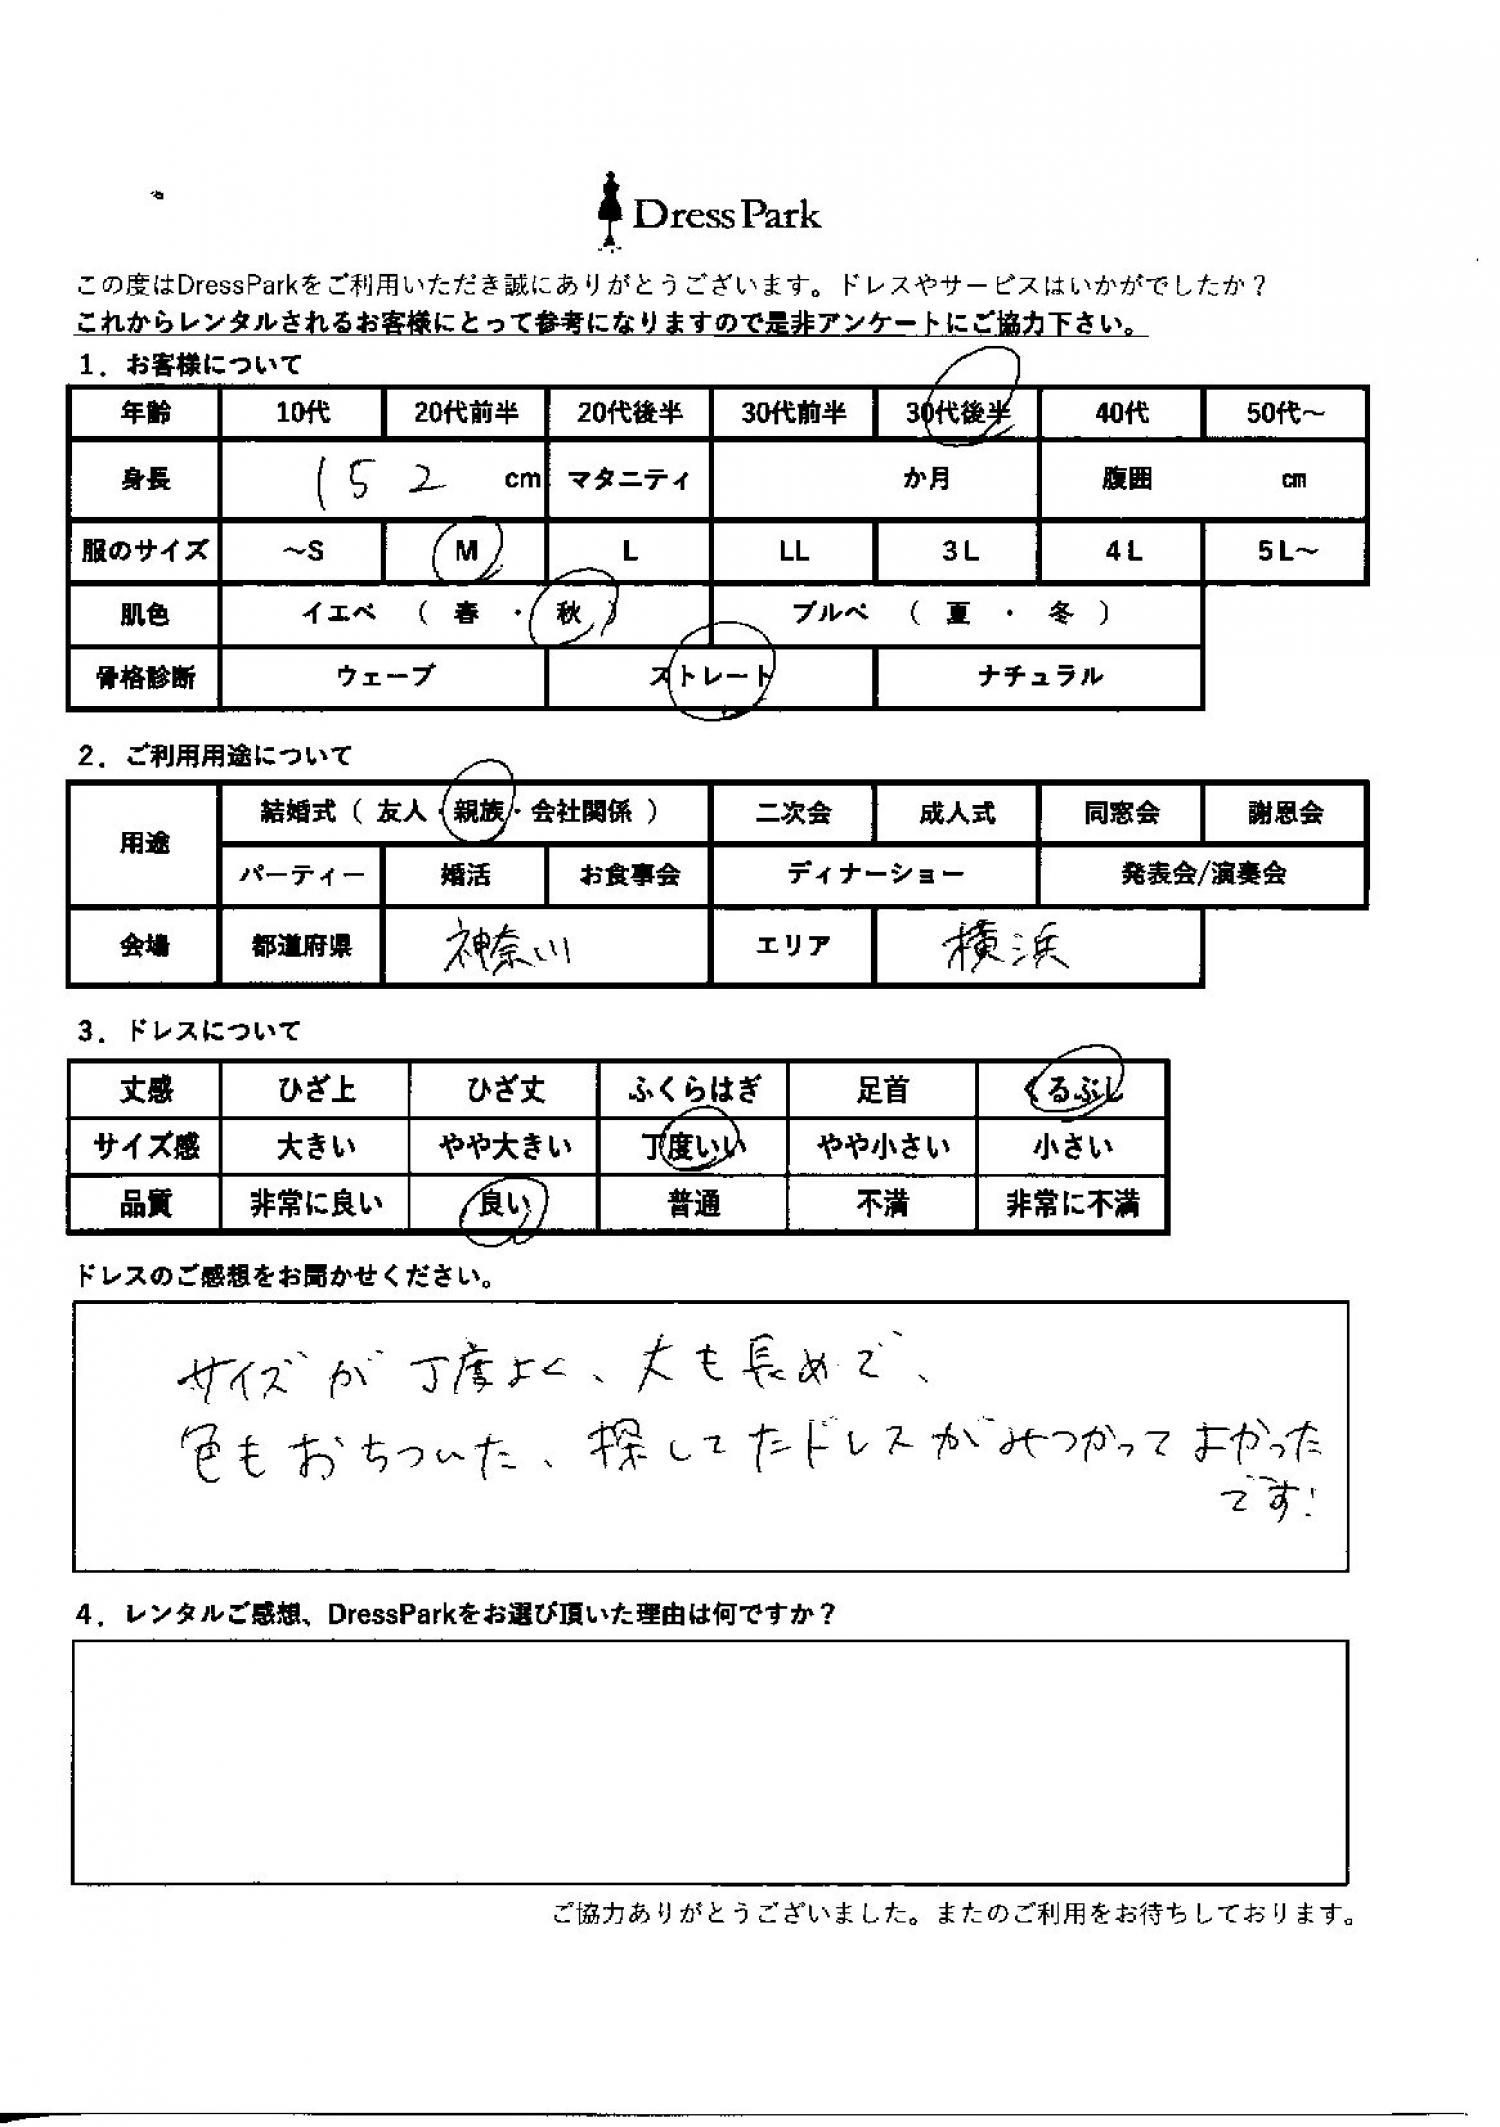 DressPark
この度はDressParkをご利用いただき誠にありがとうございます。ドレスやサービスはいかがでしたか？
これからレンタルされるお客様にとって参考になりますので是非アンケートにご協力下さい。
1．お客様について
年齢 10代 20代前半 20代後半 30代前半 30代後半 40代 50代～
身長 152 cm マタニティ か月 腹囲 cm
服のサイズ ～S M L LL 3L 4L 5L～
肌色 イエベ （ 春 ・ 秋 ） ブルベ （ 夏 ・ 冬 ）
骨格診断 ウェーブ ストレート ナチュラル
2．ご利用用途について
用途 結婚式（ 友人・親族・会社関係 ） 二次会 成人式 同窓会 謝恩会
パーティー 婚活 お食事会 ディナーショー 発表会/演奏会
会場 都道府県 神奈川 エリア 横浜
3．ドレスについて
丈感 ひざ上 ひざ丈 ふくらはぎ 足首 くるぶし
サイズ感 大きい やや大きい 丁度いい やや小さい 小さい
品質 非常に良い 良い 普通 不満 非常に不満
ドレスのご感想をお聞かせください。
サイズが丁度よく、丈も長めで、
色もおちついた、探してたドレスがみつかってよかった
です!
4．レンタルご感想、DressParkをお選び頂いた理由は何ですか？
ご協力ありがとうございました。またのご利用をお待ちしております。